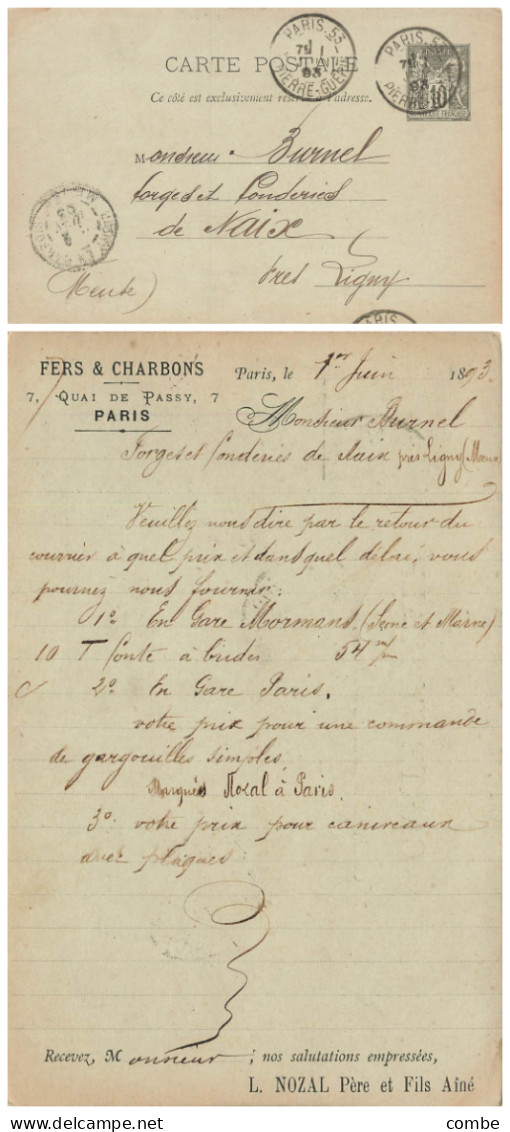 PARIS. 53
7E 1
93
PIERRE-GUERIN
PARIS. 53
93
PIERRE-
10
CARTE POSTALE
Ce côté est exclusivement réservé à l'adresse.
Monsieur Burnel
forges et fonderies
de Naix
près Ligny
(Meuse)
PARIS
FERS & CHARBONS
7, QUAI DE PASSY, 7
PARIS
Paris, le 1er Juin 1893
Monsieur Burnel
Forges et fonderies de Naix près Ligny (Meuse
Veuillez nous dire par le retour du
courrier à quel prix et dans quel délai, vous
pourriez nous fournir:
1º En Gare Mormans (Seine et Marne)
10 T fonte à 54 m/m
2º En Gare Paris.
votre prix pour une commande
de gargouilles simples
Marqués Nozal à Paris.
3º votre prix pour caniveaux
avec plaques
Recevez, Monsieur, nos salutations empressées,
L. NOZAL Père et Fils Aîné
combe